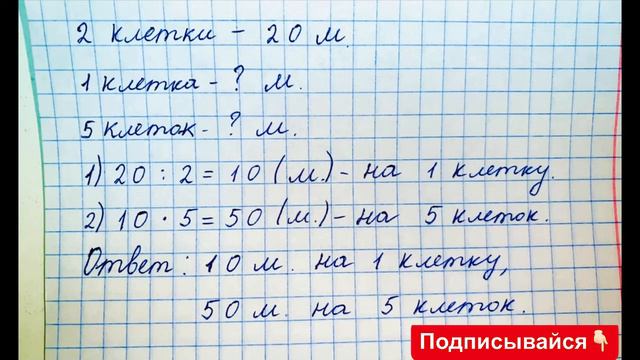 2 клетки - 20 м.
1 клетка - ? м.
5 клеток - ? м.
1) 20 : 2 = 10 (м.) - на 1 клетку.
2) 10 · 5 = 50 (м.) - на 5 клеток.
Ответ: 10 м. на 1 клетку,
50 м. на 5 клеток.
Подписывайся👇🏻